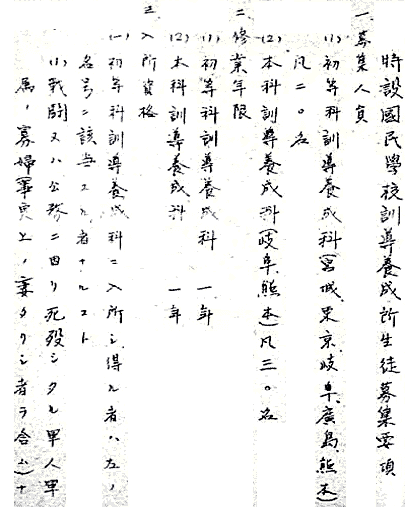 特設國民學校訓導養成所生徒募集要項
一、募集人員
(1)初等科訓導養成科(宮城東京岐阜、廣島、熊本)
凡二〇名
(2)本科訓導養成科(岐阜、熊本)凡三〇名
二、修業年限
(1)初等科訓導養成科 一年
(2)本科訓導養成科 一年
三、入所資格
(一)初等科訓導養成科ニ入所シ得ル者ハ左ノ
名号ニ該当スル者ナルコト
(1)戰鬪又ハ公務ニ因リ死歿シタル軍人軍
属ノ寡婦(事実上ノ妻タリシ者ヲ含ム)ナ